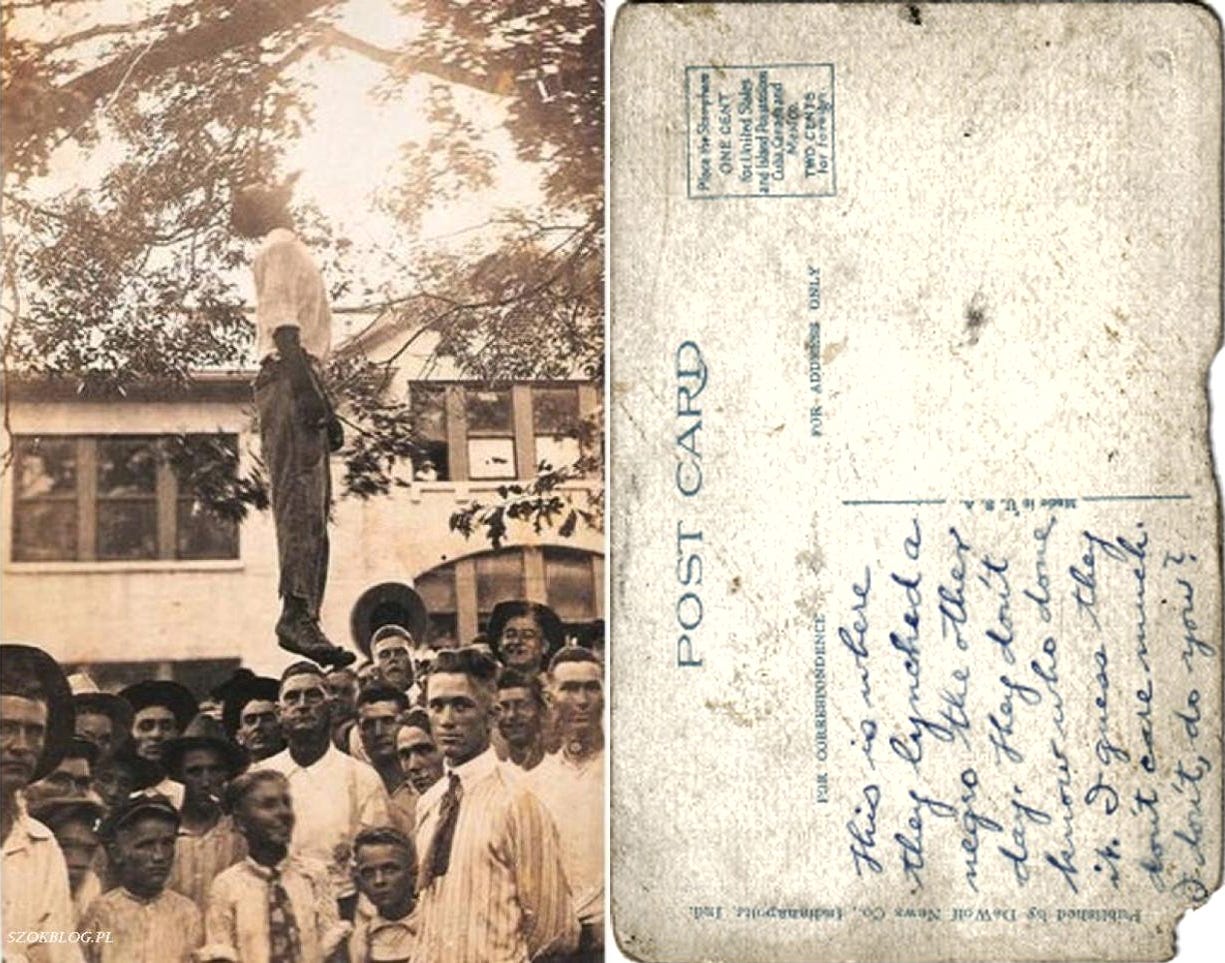 SZOKBLOG.PL
Place the Stamp here
ONE CENT
for United States
and Island Possessions
Cuba, Canada and
Mexico.
TWO CENTS
for Foreign
POST CARD
FOR CORRESPONDENCE
FOR ADDRESS ONLY
This is where
they lynched a
negro the other
day. They don't
know who done
it. I guess they
don't care much.
I don't, do you?
Made in U. S. A.
Published by DeWolf News Co., Indianapolis, Ind.